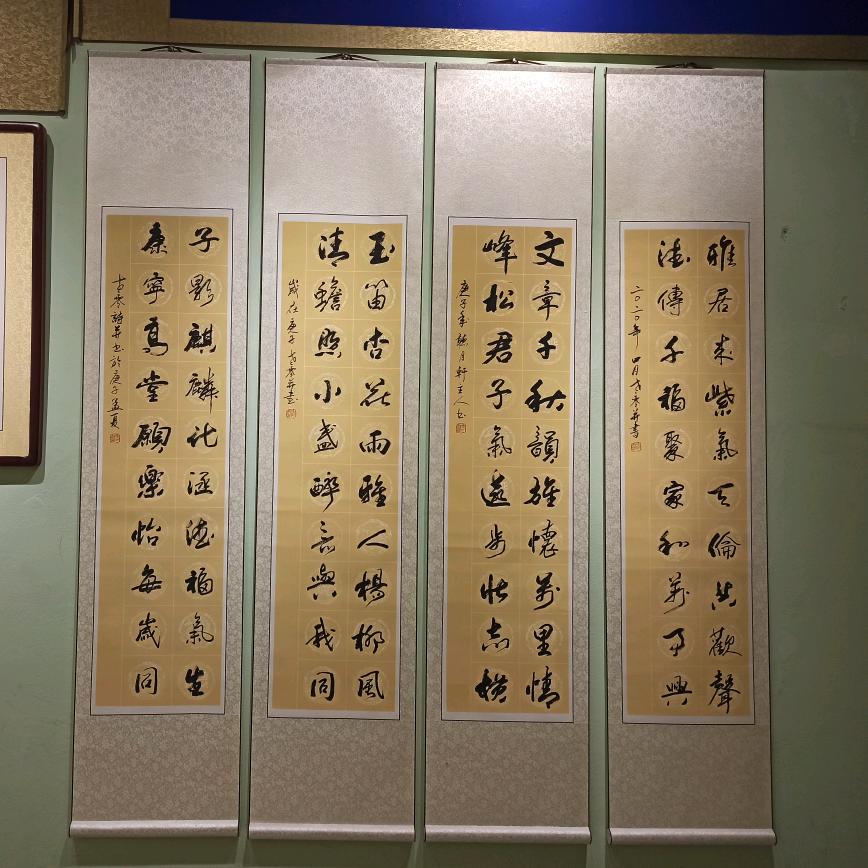 雅居來紫氣天倫共歡聲
德傳千福聚家和萬事興
二〇二〇年四月古零并書
文章千秋韻雄懷萬里情
峰松君子氣遠步壯志横
庚子年月軒主人書
玉笛杏花雨雅人楊柳風
清蟾照小盞醉與我同
歲在庚子古零并書
子麒麟化涵德福氣生
康寧高堂願樂怡每歲同
古零詩并書於庚子孟夏